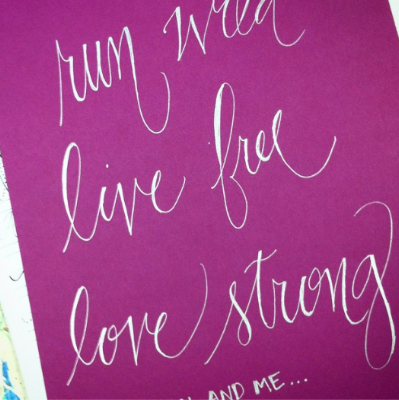 run wild
live free
love strong
AND ME...